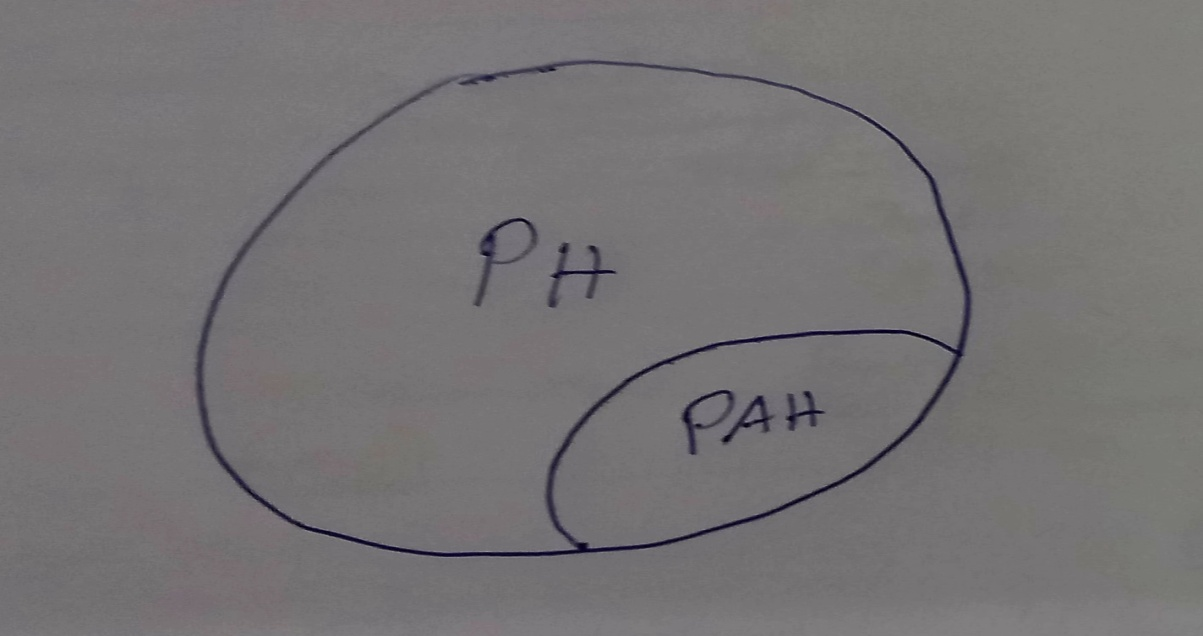 PH
PAH